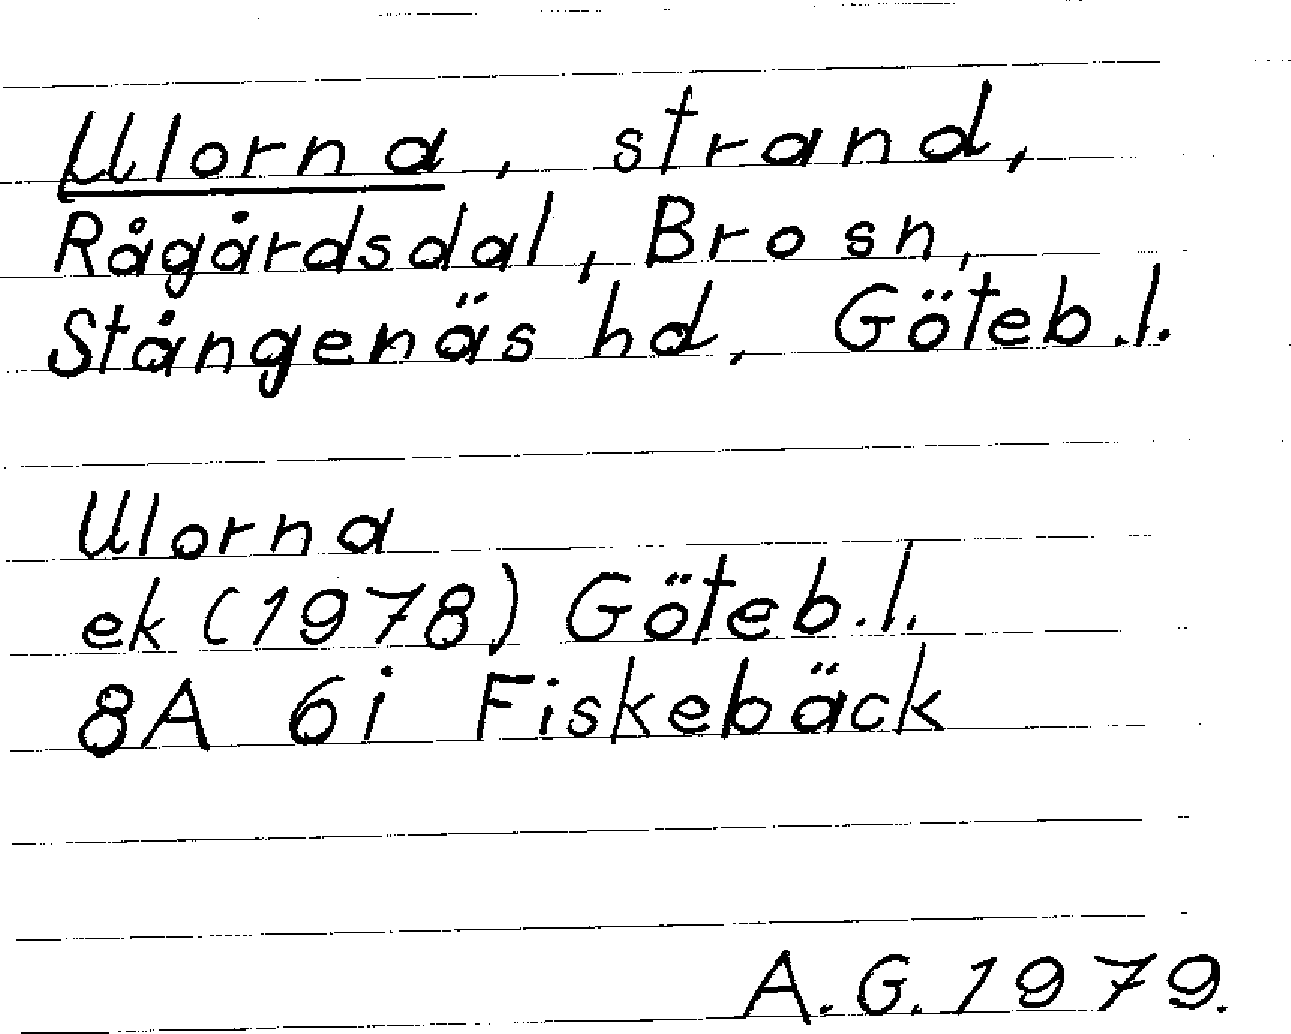 Ulorna, strand,
Rågårdsdal, Bro sn,
Stångenäs hd, Göteb.l.
Ulorna
ek (1978) Göteb.l.
8A 6i Fiskebäck
A.G. 1979.